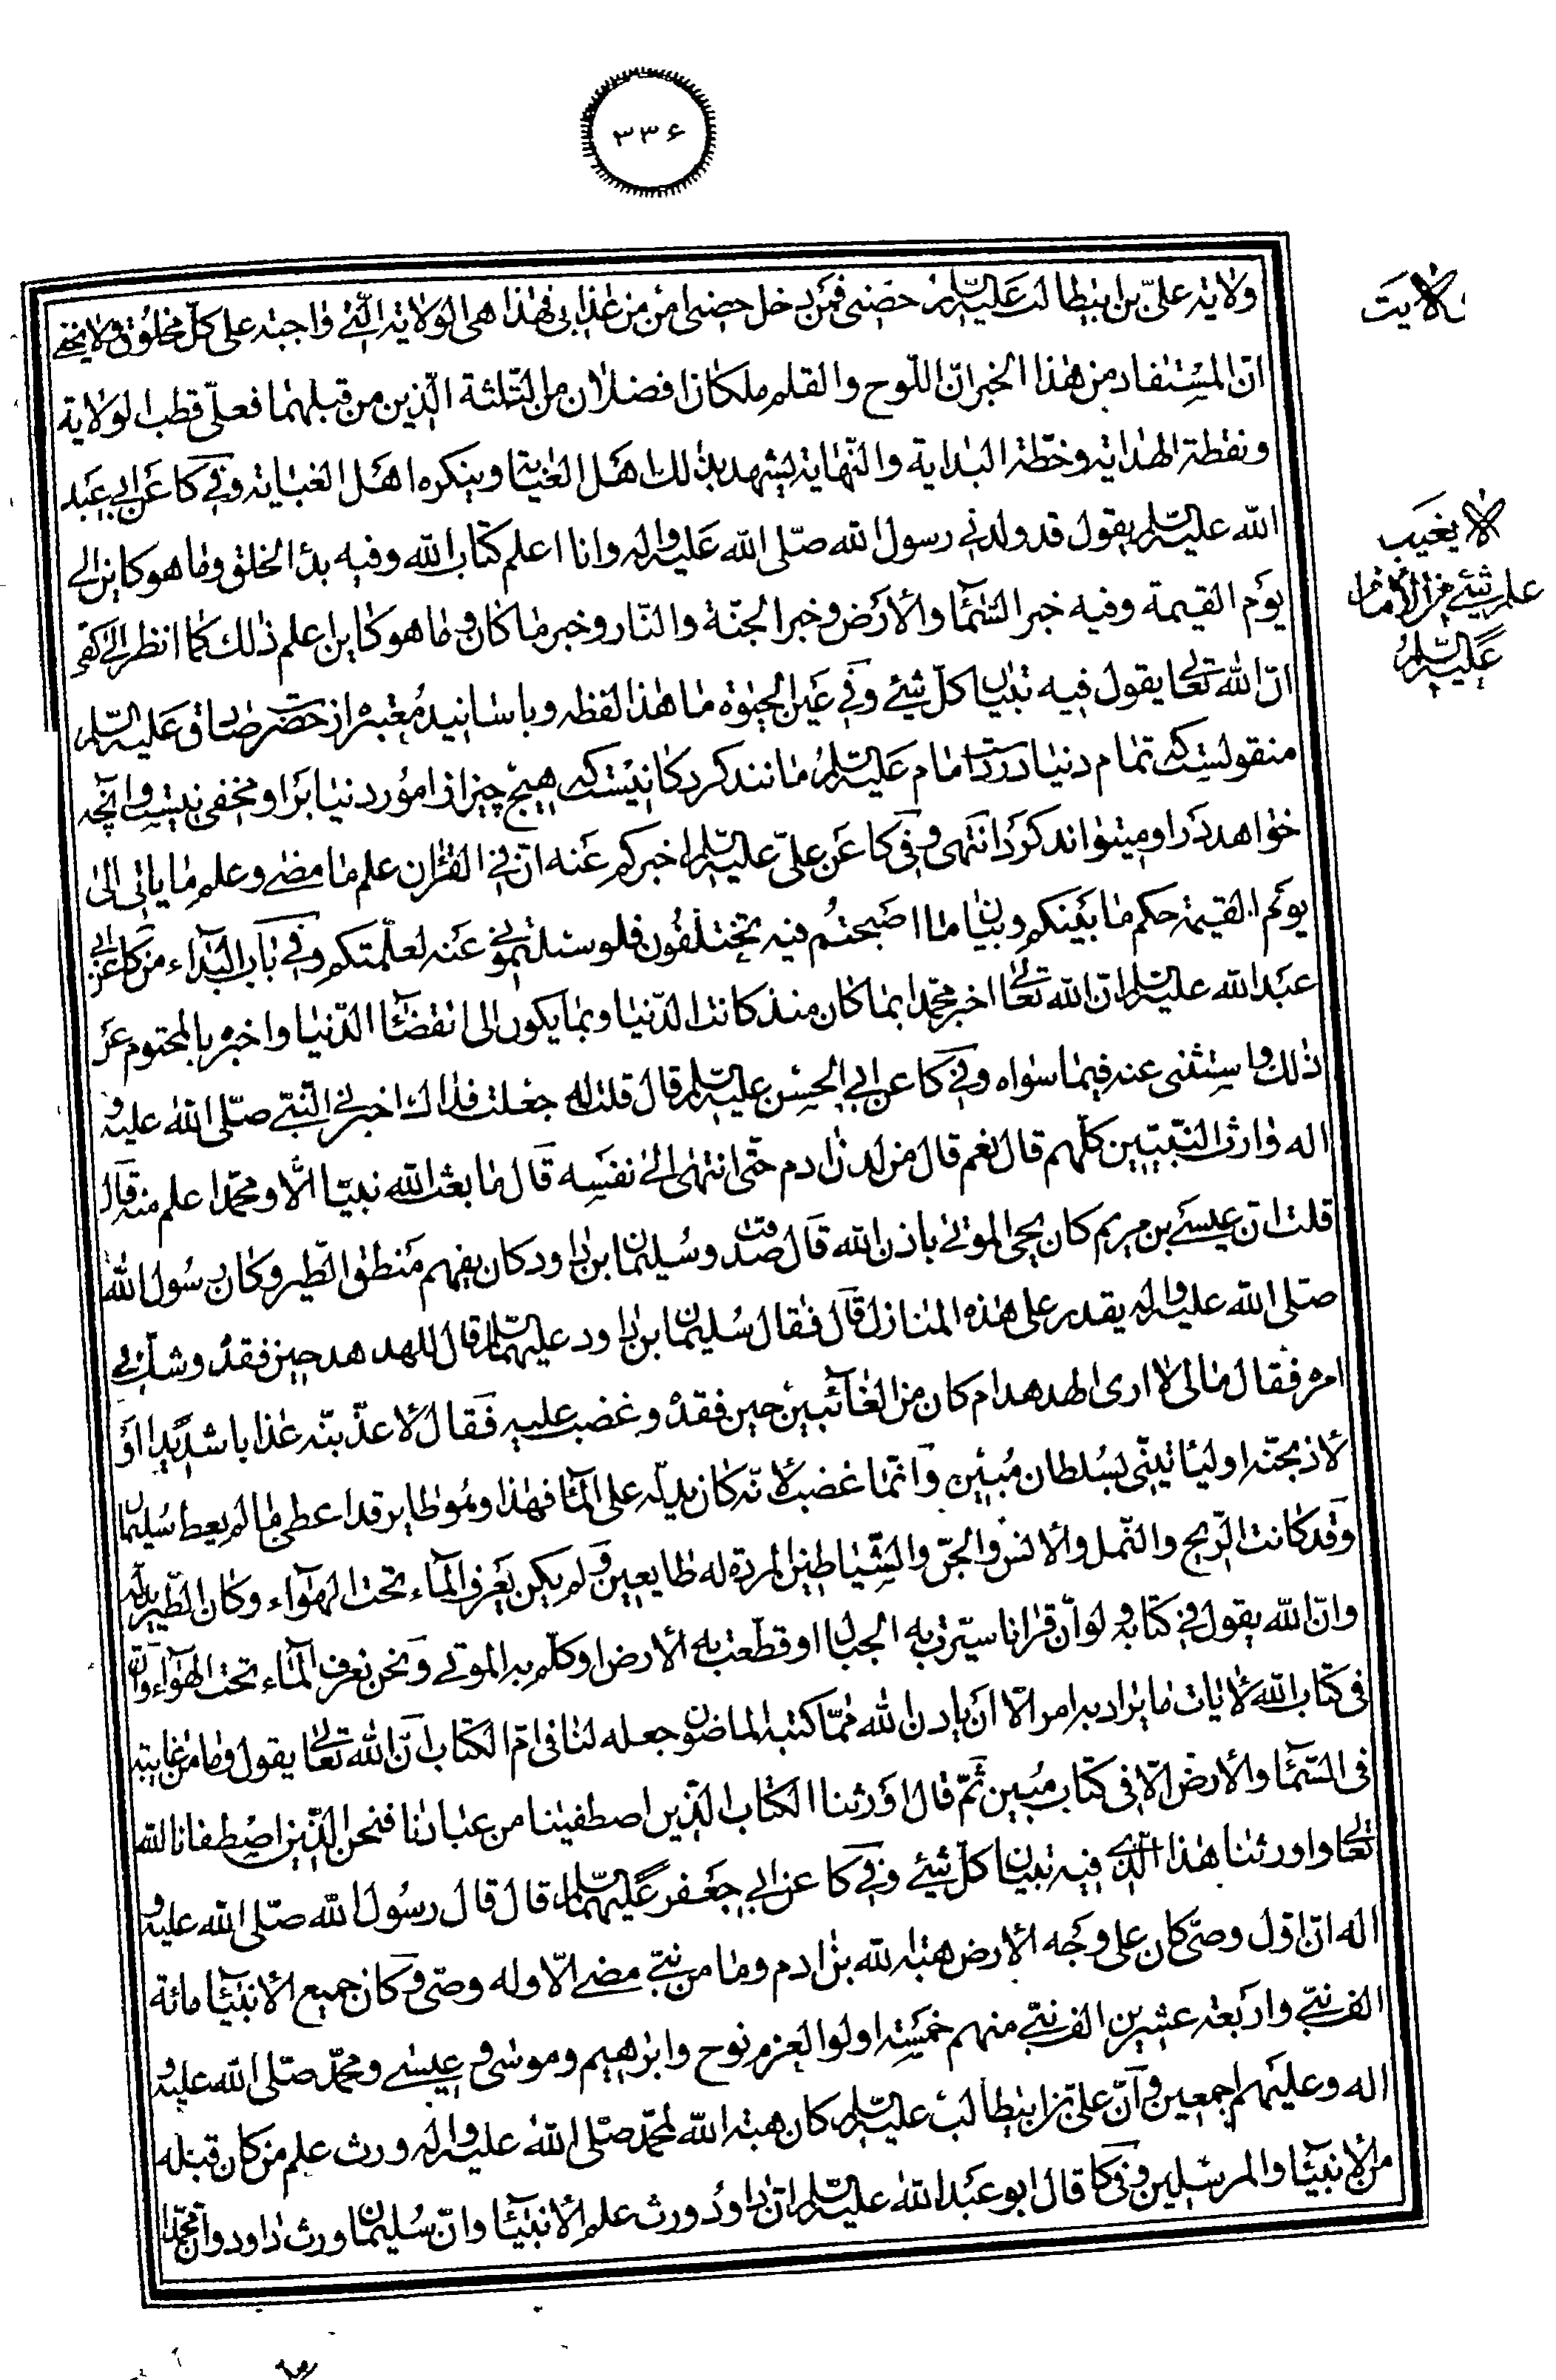 ۳۳۶
ولایة علیّ بن ابیطالب علیه السّلام حصنی فمن دخل حصنی امن من عذابی فهذا هی الولایة الّتی واجبة علی کلّ مخلوق ولا یخفی
انّ المستفاد من هذا الخبر انّ اللّوح والقلم ملکان افضلان من الثّلثة الّذین من قبلهما فعلیّ قطب الولایة
ونقطة الهدایة وخطّة البدایة والنّهایة یشهد بذلک اهل العنایة وینکره اهل الغبایة وفی کا عن ابی عبد
الله علیه السّلام یقول قد ولدنی رسول الله صلّی الله علیه واله وانا اعلم کتاب الله وفیه بدأ الخلق وما هو کاین الی
یوم القیمة وفیه خبر السّماء والأرض وخبر الجنّة والنّار وخبر ما کان وما هو کاین اعلم ذلک کما انظر الی کفّی
انّ الله تعالی یقول فیه تبیان کلّ شیئ وفی عین الحیوة ما هذا لفظه وباسانید معتبره از حضرت صادق علیه السّلام
منقولست که تمام دنیا در دست امام علیه السّلام مانند کردکانیست که هیچ چیز از امور دنیا بر او مخفی نیست وانچه
خواهد در او میتواند کرد انتهی وفی کا عن علیّ علیه السّلام اخبرکم عنه انّ فی القران علم ما مضی وعلم ما یاتی الی
یوم القیمة حکم ما بینکم وبیان ما اصبحتم فیه تختلفون فلو سئلتمونی عنه لعلّمتکم وفی باب البداء من کا عن ابی
عبد الله علیه السّلام ان الله تعالی اخبر محمّدا بما کان منذ کانت الدّنیا وبما یکون الی انقضاء الدّنیا واخبره بالمحتوم من
ذلک واستثنی عنه فیما سواه وفی کا عن ابی الحسن علیه السّلام قال قلت له جعلت فداک اخبرنی النّبیّ صلّی الله علیه و
اله وارث النّبیّین کلّهم قال نعم قال من لدن ادم حتّی انتهی الی نفسه قال ما بعث الله نبیّا الّا ومحمّد اعلم منه قال
قلت انّ عیسی بن مریم کان یحی الموتی باذن الله قال صدقت وسلیمان ابن داود کان یفهم منطق الطّیر وکان رسول الله
صلّی الله علیه واله یقدر علی هذه المنازل قال فقال سلیمان ابن داود علیهما السّلام قال للهدهد حین فقده وشکّ فی
امره فقال ما لی لا اری الهدهد ام کان من الغائبین حین فقده وغضب علیه فقال لأعذّبنّه عذابا شدیدا او
لأذبحنّه او لیأتینّی بسلطان مبین وانّما غضب لأنّه کان یدلّه علی الماء فهذا وهو طایر قد اعطی ما لم یعط سلیمان
وقد کانت الرّیح والنّمل والأنس والجنّ والشّیاطین المردة له طایعین ولم یکن یعرف الماء تحت الهواء وکان الطّیر یدلّه
وانّ الله یقول فی کتابه ولو أن قرانا سیّرت به الجبال او قطّعت به الأرض او کلّم به الموتی ونحن نعرف الماء تحت الهواء وانّ
فی کتاب الله لأیات ما یراد بها امر الّا ان یاذن الله ممّا کتبه الماضون جعله لنا فی امّ الکتاب انّ الله تعالی یقول وما من غایبة
فی السّماء والأرض الّا فی کتاب مبین ثمّ قال اورثنا الکتاب الّذین اصطفینا من عبادنا فنحن الّذین اصطفانا الله
تعالی واورثنا هذا الّذی فیه تبیان کلّ شیئ وفی کا عن ابی جعفر علیهما السّلام قال قال رسول الله صلّی الله علیه و
اله انّ اوّل وصیّ کان علی وجه الأرض هبة الله بن ادم وما من نبیّ مضی الّا وله وصیّ وکان جمیع الأنبیاء مائة
الف نبیّ واربعة عشرین الف نبیّ منهم خمسة اولوا العزم نوح وابرهیم وموسی وعیسی ومحمّد صلّی الله علیه و
اله وعلیهم اجمعین وانّ علیّ بن ابیطالب علیه السّلام کان هبة الله لمحمّد صلّی الله علیه واله ورث علم من کان قبله
من الأنبیاء والمرسلین وفی کا قال ابو عبد الله علیه السّلام ان داود ورث علم الأنبیاء وانّ سلیمان ورث داود وان محمّدا
لا یغیب
علم شیئ من الأمام
علیه السّلام